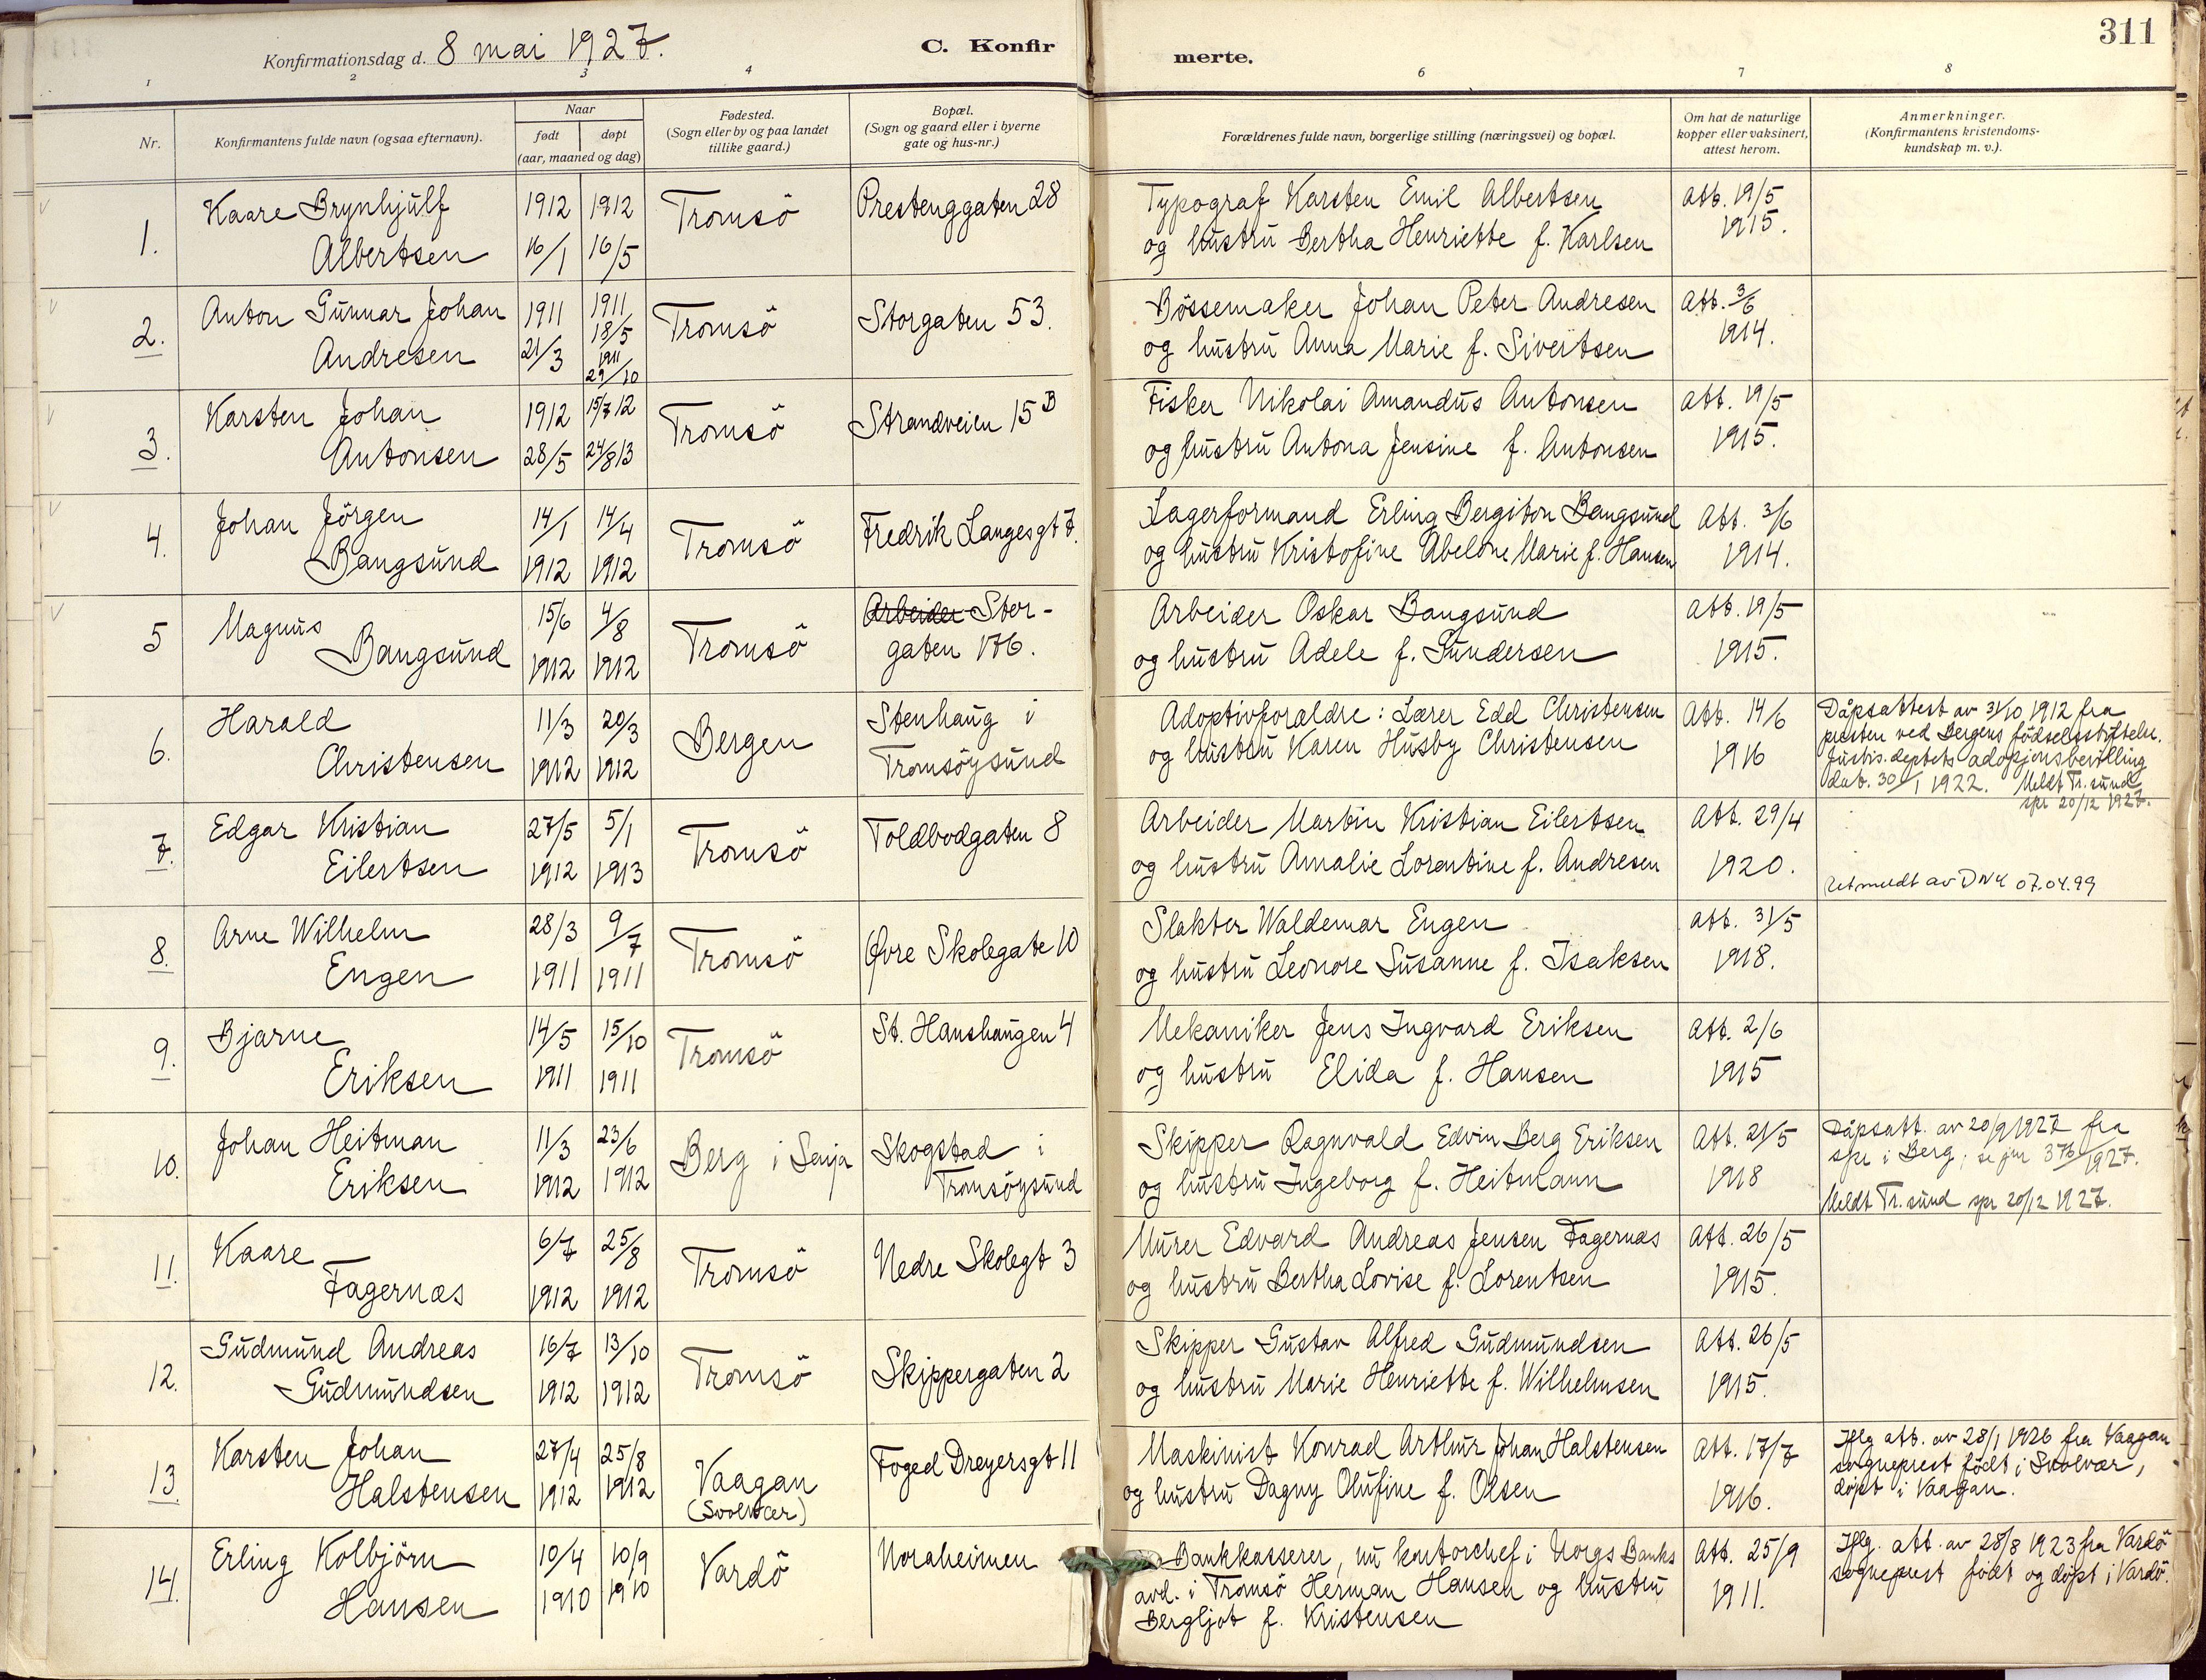 311
Konfirmationsdag d. 8 mai 1927.
C. Konfirmerte.
1 2 3 4 6 7 8
Nr.
Konfirmantens fulde navn (ogsaa efternavn).
Naar
født døpt
(aar, maaned og dag)
Fødested.
(Sogn eller by og paa landet
tillike gaard.)
Bopæl.
(Sogn og gaard eller i byerne
gate og hus-nr.)
Forældrenes fulde navn, borgerlige stilling (næringsvei) og bopæl.
Om hat de naturlige
kopper eller vaksinert,
attest herom.
Anmerkninger.
(Konfirmantens kristendoms-
kundskap m. v.).
1. Kaare Brynhjulf 1912 1912 Tromsö Prestenggaten 28 Typograf Karsten Emil Albertsen Att. 19/5
Albertsen 16/1 16/5 og hustru Bertha Henriette f. Karlsen 1915.
2. Anton Gunnar Johan 1911 1911 18/5 Tromsö Storgaten 53. Bössemaker Johan Peter Andresen Att. 3/6
Andresen 21/3 1911 29/10 og hustru Anna Marie f. Sivertsen 1914.
3. Karsten Johan 1912 15/7 12 Tromsö Strandveien 15 B Fisker Nikolai Amandus Antonsen Att. 19/5
Antonsen 28/5 24/8 13 og hustru Antona Jensine f. Antonsen 1915.
4. Johan Jörgen 14/1 14/4 Tromsö Fredrik Langesgt 7. Lagerformand Erling Bergiton Bangsund Att. 3/6
Bangsund 1912 1912 og hustru Kristofine Abelone Marie f. Hansen 1914.
5 Magnus 15/6 4/8 Tromsö Arbeider Stor- Arbeider Oskar Bangsund Att. 19/5
Bangsund 1912 1912 gaten 176. og hustru Adele f. Gundersen 1915.
6. Harald 11/3 20/3 Bergen Stenhaug i Adoptivforældre: Lærer Edd Christensen Att. 14/6 Dåpsattest av 31/10 1912 fra
Christensen 1912 1912 Tromsöysund og hustru Karen Husby Christensen 1916 presten ved Bergens födselsstiftelse.
Justis.deptets adopsjonsbevilling
dat. 30/1 1922. Meldt Tr.sund
spr 20/12 1927.
7. Edgar Kristian 27/5 5/1 Tromsö Toldbodgaten 8 Arbeider Martin Kristian Eilertsen Att. 29/4
Eilertsen 1912 1913 og hustru Amalie Lorentine f. Andresen 1920. Utmeldt av DNK 07.04.99
8. Arne Wilhelm 28/3 9/7 Tromsö Øvre Skolegate 10 Slakter Waldemar Engen Att. 31/5
Engen 1911 1911 og hustru Leonore Susanne f. Isaksen 1918.
9. Bjarne 14/5 15/10 Tromsö St. Hanshaugen 4 Mekaniker Jens Ingvard Eriksen Att. 2/6
Eriksen 1911 1911 og hustru Elida f. Hansen 1915
10. Johan Heitman 11/3 23/6 Berg i Senja Skogstad i Skipper Ragnvald Edvin Berg Eriksen Att. 21/5 Dåpsatt. av 20/9 1927 fra
Eriksen 1912 1912 Tromsöysund og hustru Ingeborg f. Heitmann 1918 spr i Berg; se jnr 376/1927.
Meldt Tr.sund spr 20/12 1927.
11. Kaare 6/7 25/8 Tromsö Nedre Skolegt 3 Murer Edvard Andreas Jensen Fagernæs Att. 26/5
Fagernæs 1912 1912 og hustru Bertha Lovise f. Lorentsen 1915.
12. Gudmund Andreas 16/7 13/10 Tromsö Skippergaten 2 Skipper Gustav Alfred Gudmundsen Att. 26/5
Gudmundsen 1912 1912 og hustru Marie Henriette f. Wilhelmsen 1915.
13. Karsten Johan 27/4 25/8 Vaagan Foged Dreyersgt 11 Maskinist Konrad Arthur Johan Halstensen Att. 17/7 Iflg att. av 28/1 1926 fra Vaagan
Halstensen 1912 1912 (Svolvær) og hustru Dagny Olufine f. Olsen 1916. sogneprest födt i Svolvær,
döpt i Vaagan.
14. Erling Kolbjörn 10/4 10/9 Vardö Noraheimen Bankkasserer, nu kontorchef i Norgs Banks Att. 25/9 Iflg. att. av 28/8 1923 fra Vardö
Hansen 1910 1910 avd. i Tromsö Herman Hansen og hustru 1911. sogneprest födt og döpt i Vardö.
Bergljot f. Kristensen